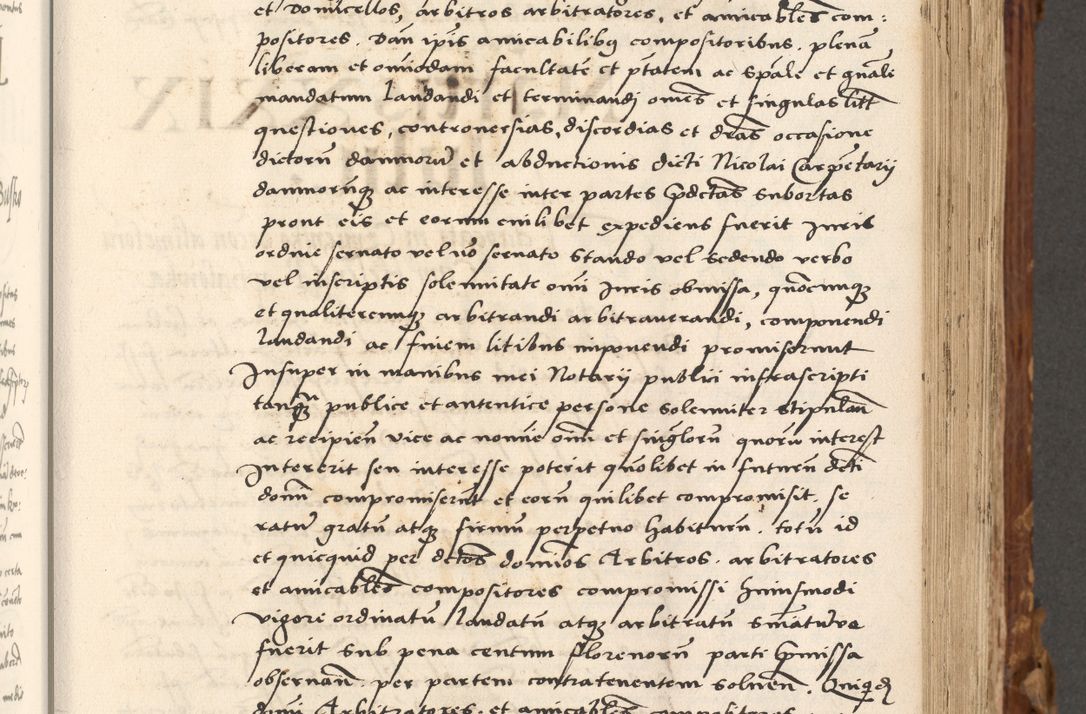 et Domicellos, arbitros arbitratores, et amicabiles com:
positores. Dan ipis amicabilibus compositoribus. plena,
liberam et omnimodam facultate et ptatem ac spale et gnale
mandatum laudandi et terminandi omes et singulas litt
questiones, controuersias, discordias et dras occasione
dictoru damnoru et abductionis dicti Nicolai Carpentarij
damnorumque ac interesse inter partes predictas subortas
prout eis et eorum cuilibet expediens fuerit Juris
ordine seruato vel no seruato stando vel sedendo verbo
vel inscriptis solemnitate omni Juris obmissa, quocumque
et qualitercumque arbitrandi arbitrauerandi, componendi
laudandi ac finem litibus imponendi promiserunt
Insuper in manibus mei Notarij publici infrascripti
tanquam publice et autentice persone solemniter stipulan
ac recipien vice ac nomine omni et singlorum quoru interest
Intererit seu interesse poterit quolibet in futuru dcti
domi compromiserunt et eorum quilibet compromisit. se
ratu gratu atque firmu perpetuo habituru. totu id
et quicquid per dctos dominos Arbitros. arbitratores
et amicabiles compositores compromissi huiusmodi
vigore ordinatu laudatu atque arbitratu sniatuue
fuerit sub pena centum florenoru parti premissa
obseruan. per partem contrauenentem soluen. Quiquidem
domi Arbitratores. et amicabiles compositores